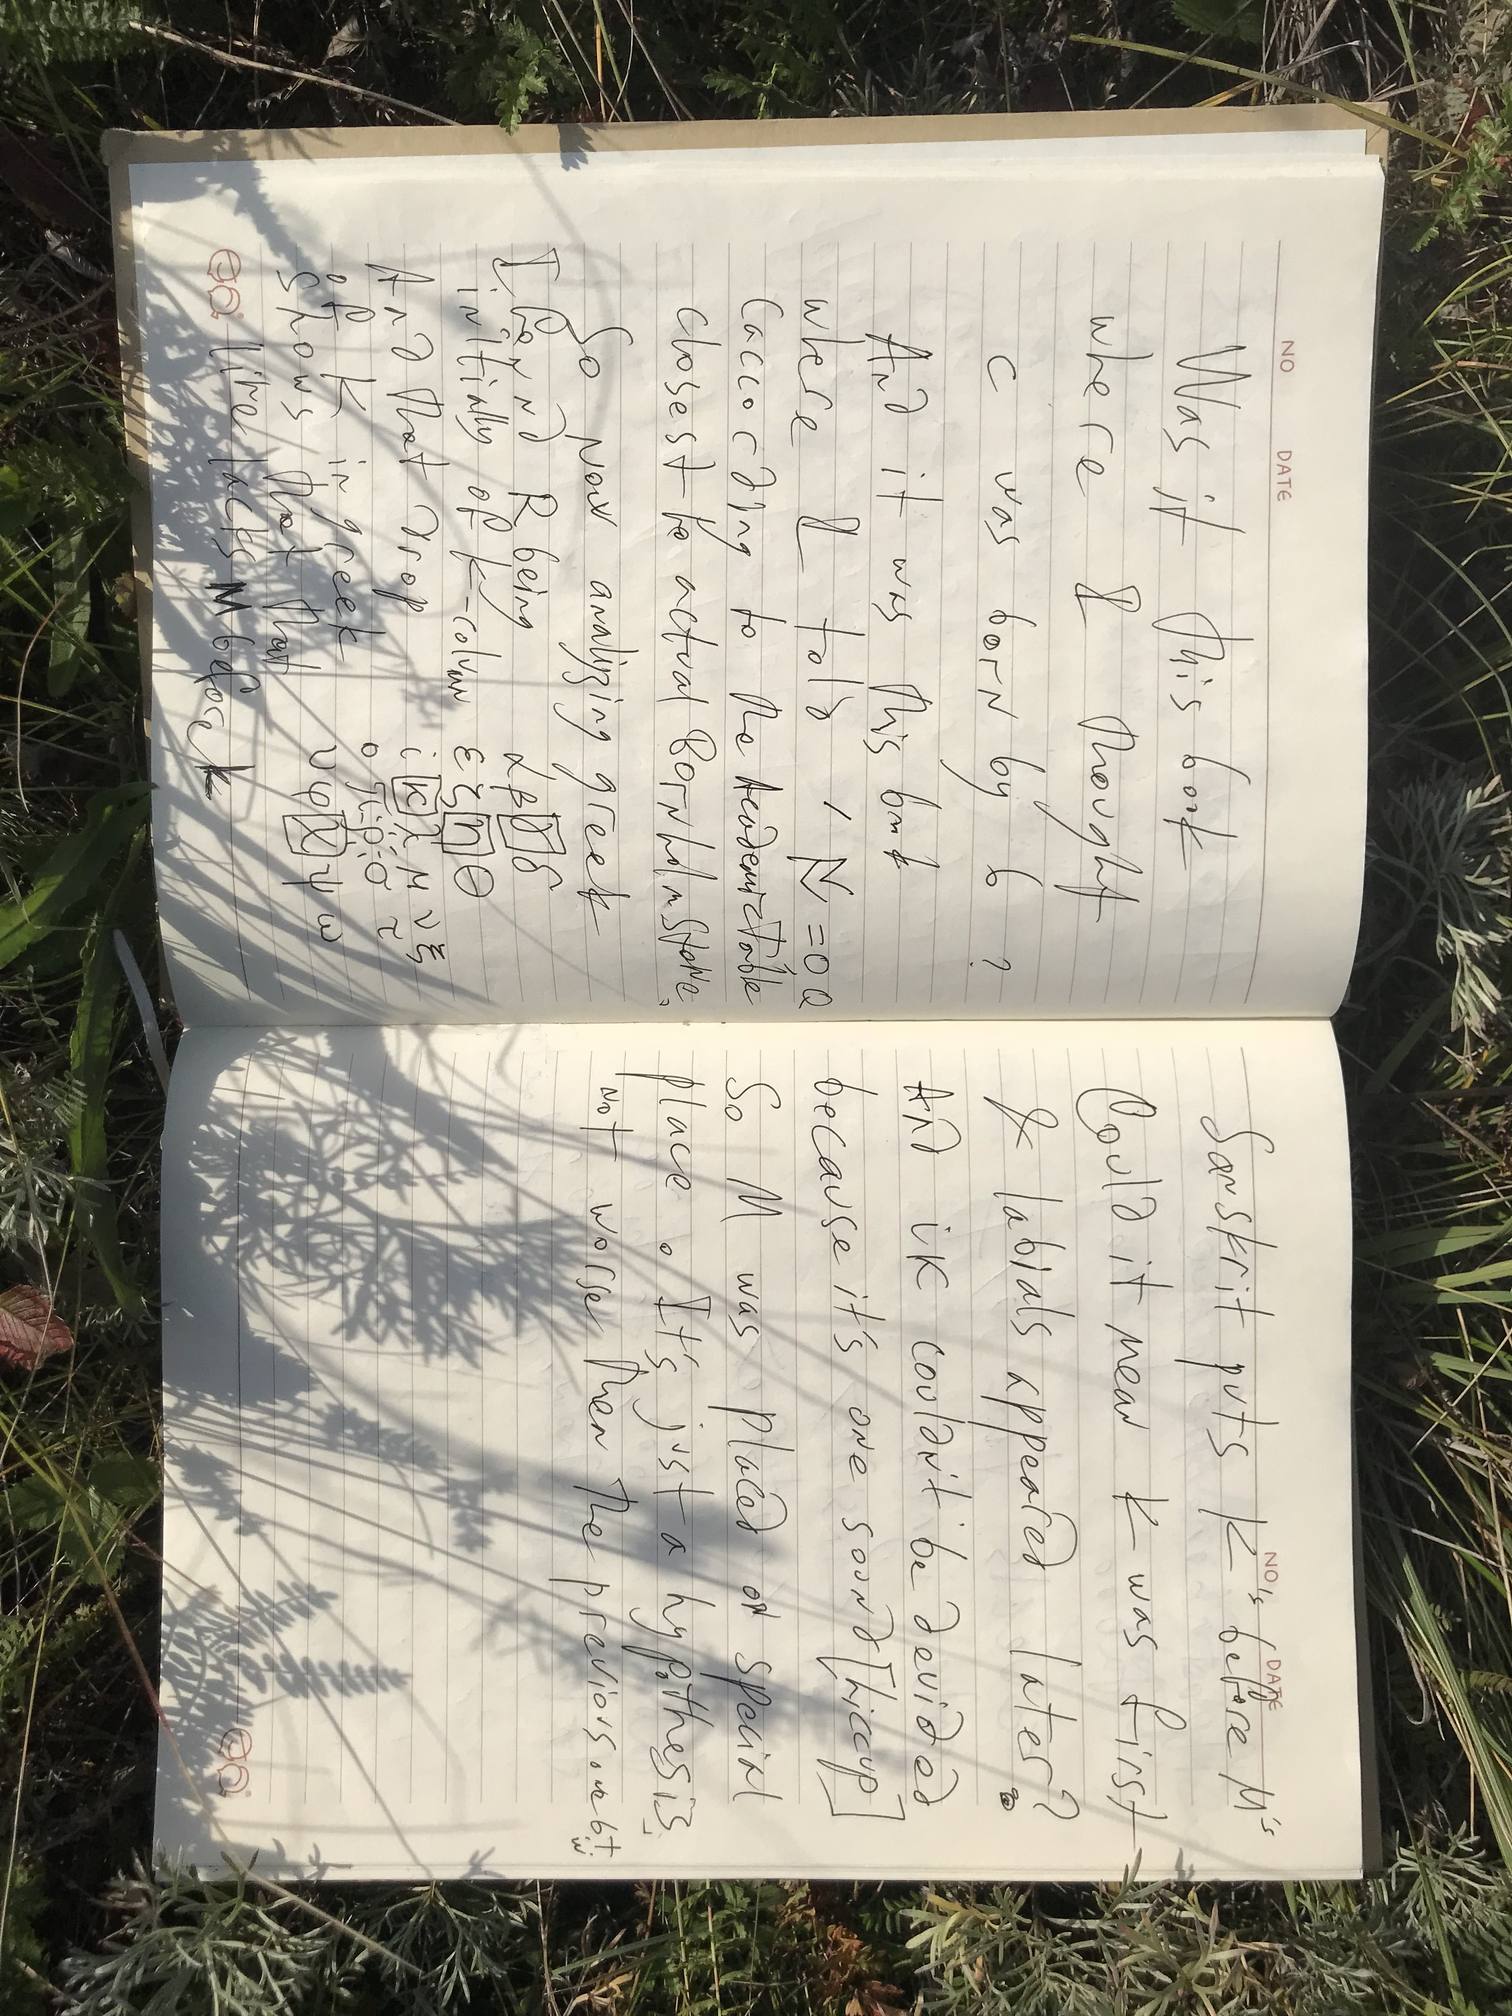 NO DATE
Was it this book
where I thought
c was born by 6 ?
And it was this book
where I told , N = 0 Q
(according to the Academic table
closest to actual Bornholm stone.
So now analizing greek
I found R being
initially of K-column
And that drop
of K in greek
shows that that
line lacks M before k
α β γ δ
ε ζ η θ
i κ λ μ ν ξ
ο π ρ σ τ
υ φ χ ψ ω
NO. DATE
Sanskrit puts K's before M's
Could it mean K was first
& labials appeared later?
And ik couldn't be devided
because it's one sound [hiccup]
So M was placed on special
place. It's just a hypothesis
not worse then the previous